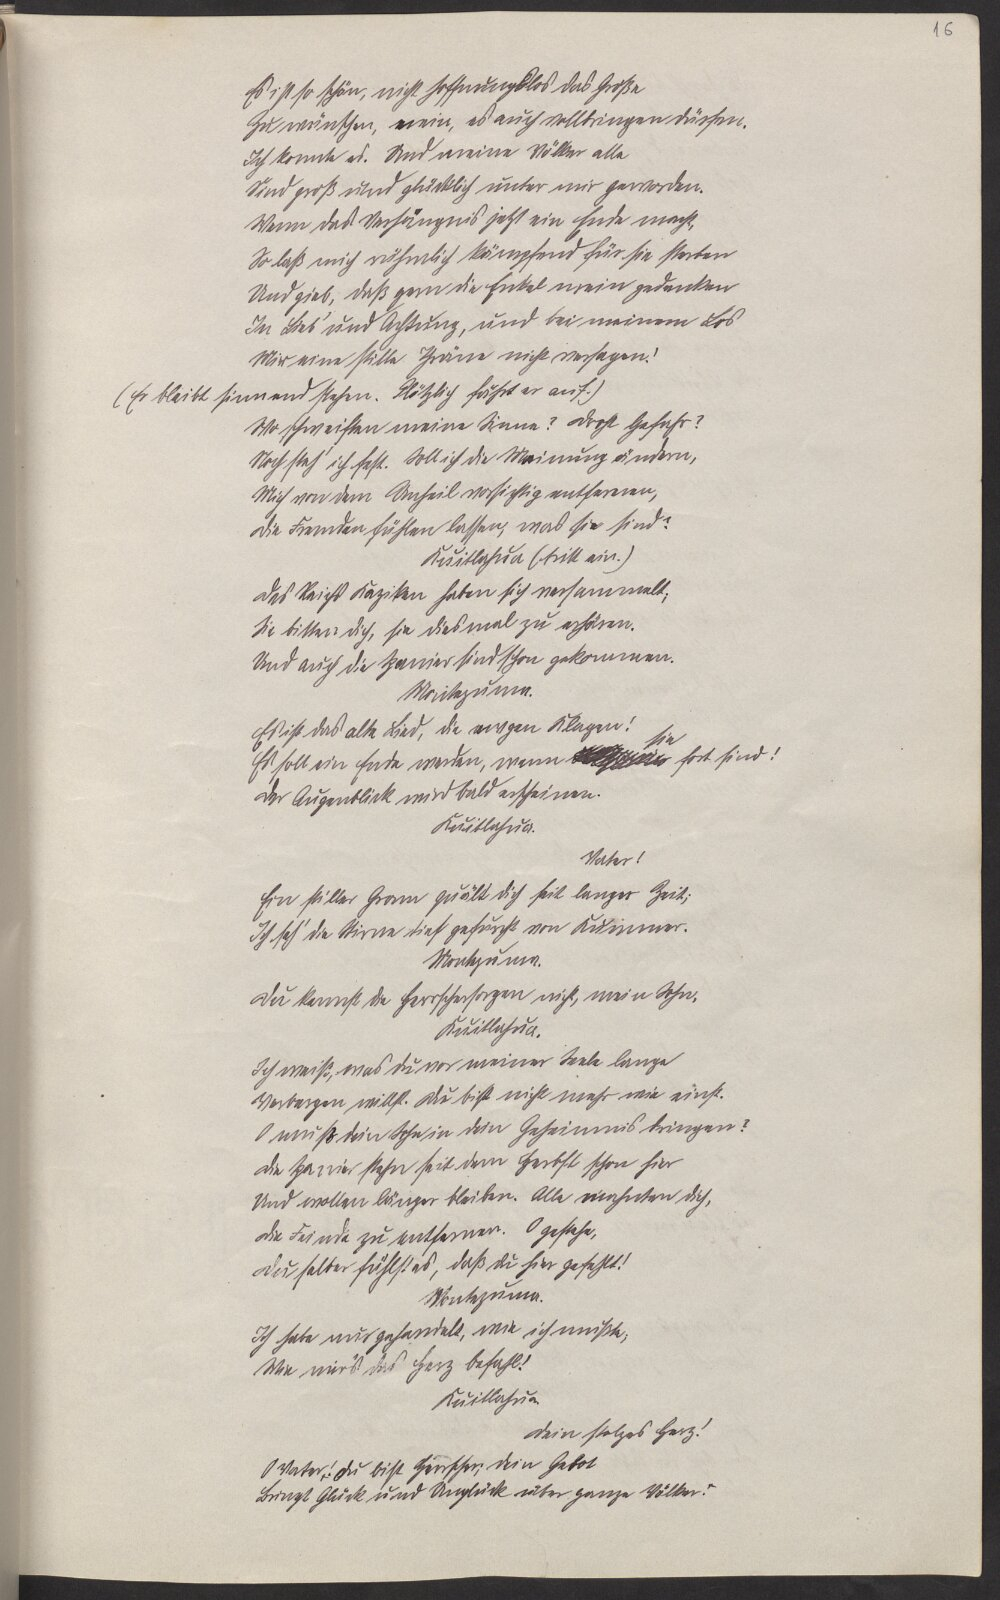 16
Es ist so schön, nicht hoffnungslos das Große
Zu wünschen, nein, es auch vollbringen dürfen.
Ich konnte es. Und meine Völker alle
Sind groß und glücklich unter mir geworden.
Wenn das Verhängnis jetzt ein Ende macht,
So laß mich rühmlich kämpfend für sie sterben
Und gieb, daß gern die Enkel mein gedenken
In Lieb' und Achtung, und bei meinem Los
Mir eine stille Träne nicht versagen!
(Er bleibt sinnend stehen. Plötzlich fährt er auf.)
Wo schweiften meine Sinne? Droht Gefahr?
Noch steh' ich fest. Soll ich die Meinung ändern,
Mich von dem Unheil vorsichtig entfernen,
Die Fremden fühlen lassen, was sie sind?
Kuitlahua (tritt ein.)
Des Reichs Kaziken haben sich versammelt;
Sie bitten dich, sie diesmal zu erhören.
Und auch die Spanier sind schon gekommen.
Montezuma.
Es ist das alte Lied, die ewgen Klagen!
sie
Es soll ein Ende werden, wenn fort sind!
Der Augenblick wird bald erscheinen.
Kuitlahua.
Vater!
Ein stiller Gram quält dich seit langer Zeit;
Ich seh' die Stirne tief gefurcht von Kummer.
Montezuma.
Du kennst die Herrschersorgen nicht, mein Sohn.
Kuitlahua.
Ich weiß, was du vor meiner Seele lange
Verbergen willst. Du bist nicht mehr wie einst.
O muß dein Sohn in dein Geheimnis dringen?
Die Spanier stehn seit dem Herbst schon hier
Und wollen länger bleiben. Alle mahnten dich,
Die Feinde zu entfernen. O gestehe,
Du selber fühlst es, daß du hier gefehlt!
Montezuma.
Ich habe nur gehandelt, wie ich mußte,
Wie mir's das Herz befahl!
Kuitlahua.
Dein stolzes Herz!
O Vater! Du bist Herrscher; dein Gebot
Bringt Glück und Unglück über ganze Völker!